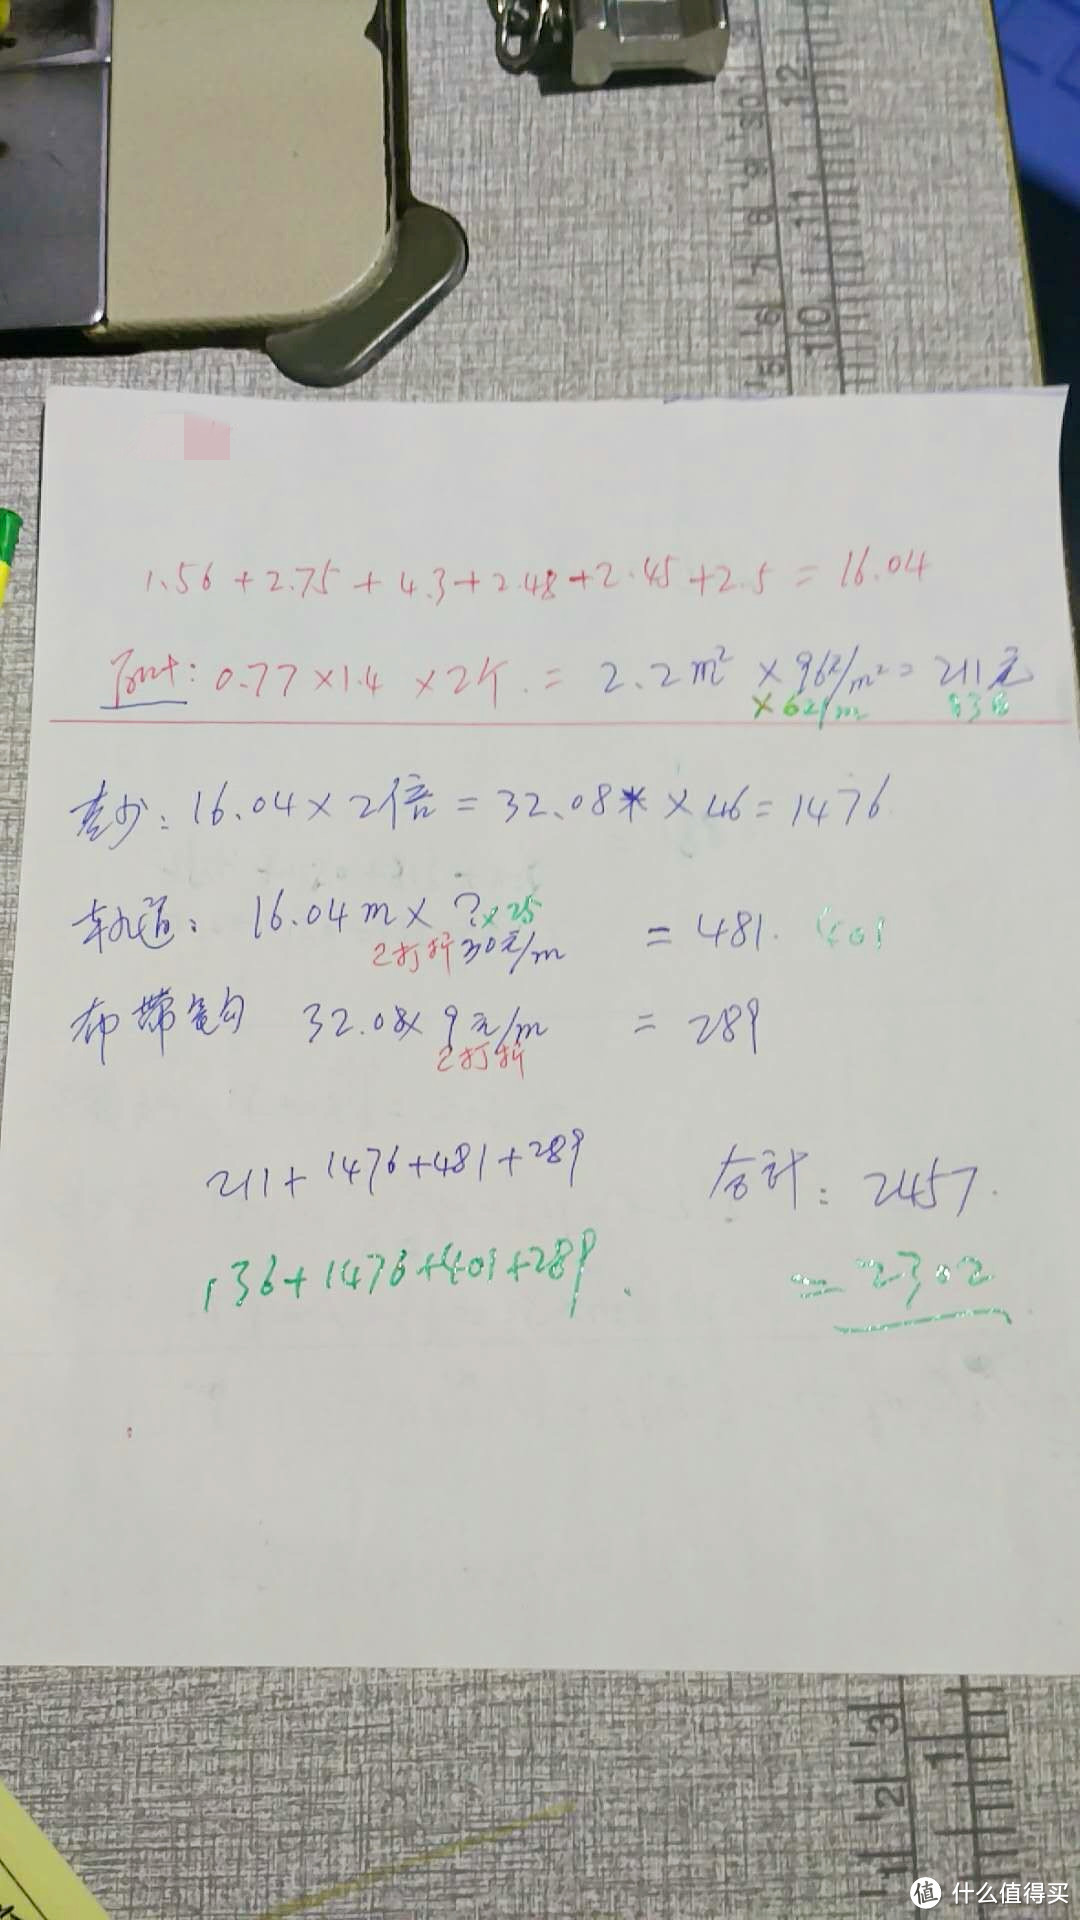 12
11
10
10
9
8
7
6
5
1.56+2.75+4.3+2.48+2.45+2.5=16.04
0.77×1.4×2个.=2.2m²×96元/m²=211元
×62/m
16.04×2倍=32.08米×46=1476
轨道: 16.04m×?×25 =481. 401
2打折 30元/m
布带 勾 32.08×9元/m =289
2打折
211+1476+481+289 合计: 2457.
136+1476+401+289. =2302
3
2
1
1
值 什么值得买